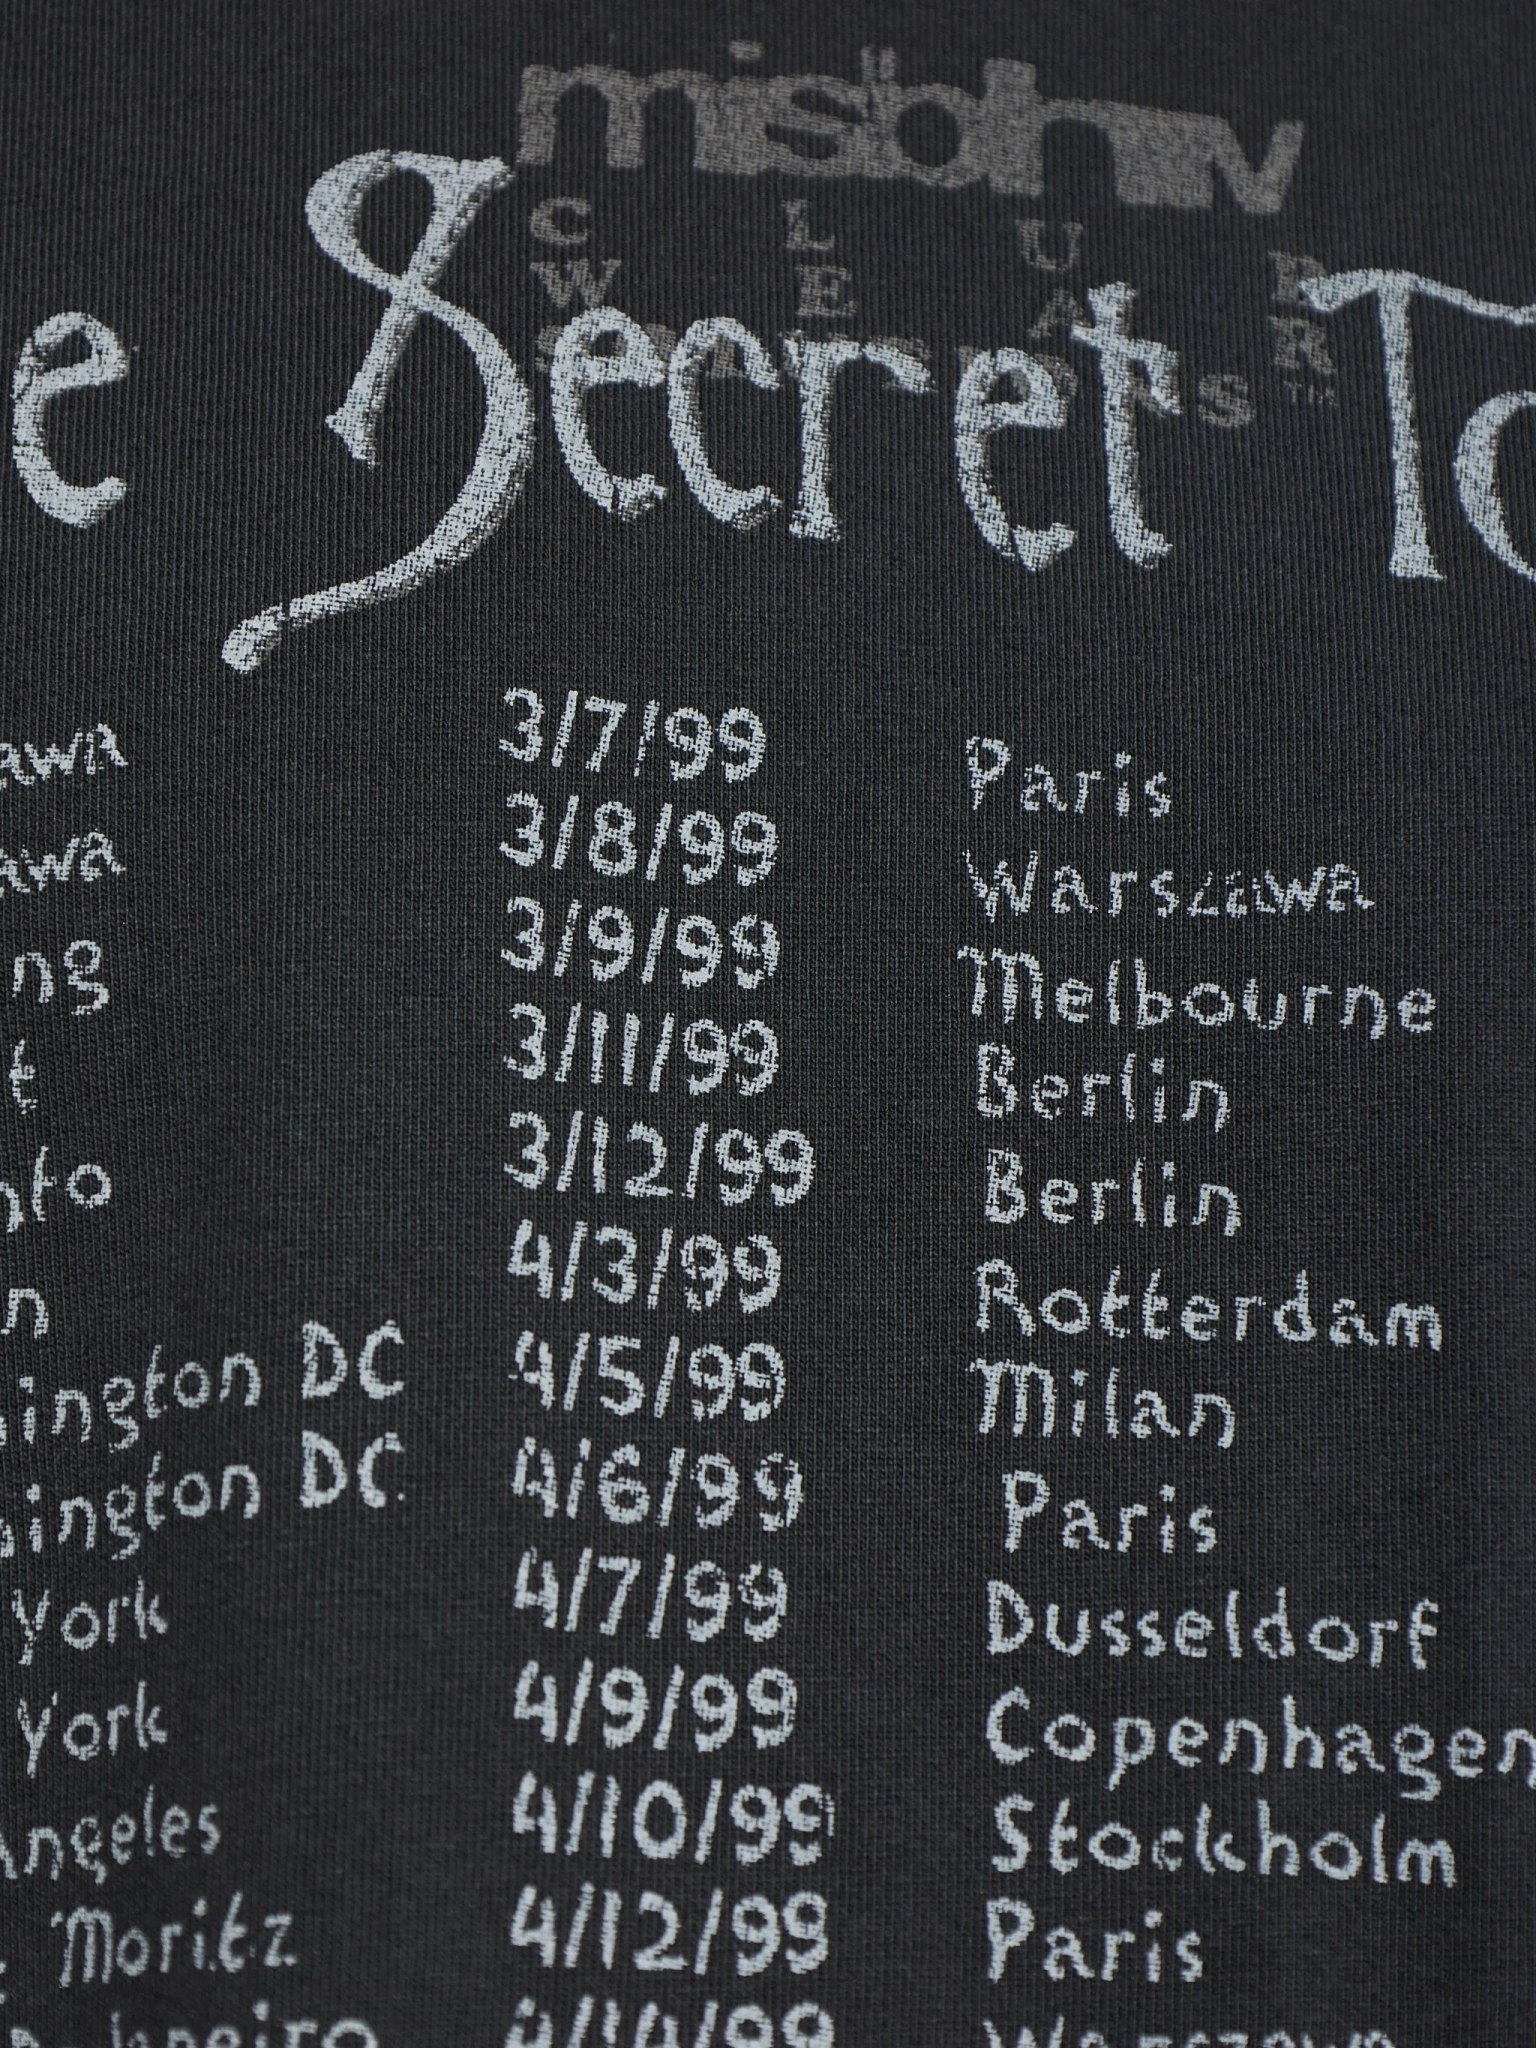 misbhv
C L U B
W E A R
™
e Secret To
3/7/99 Paris
3/8/99 Warszawa
ng 3/9/99 Melbourne
3/11/99 Berlin
3/12/99 Berlin
4/3/99 Rotterdam
ington DC 4/5/99 Milan
ington DC 4/6/99 Paris
York 4/7/99 Dusseldorf
York 4/9/99 Copenhagen
Angeles 4/10/99 Stockholm
Moritz 4/12/99 Paris
Janeiro 4/14/99 Warszawa